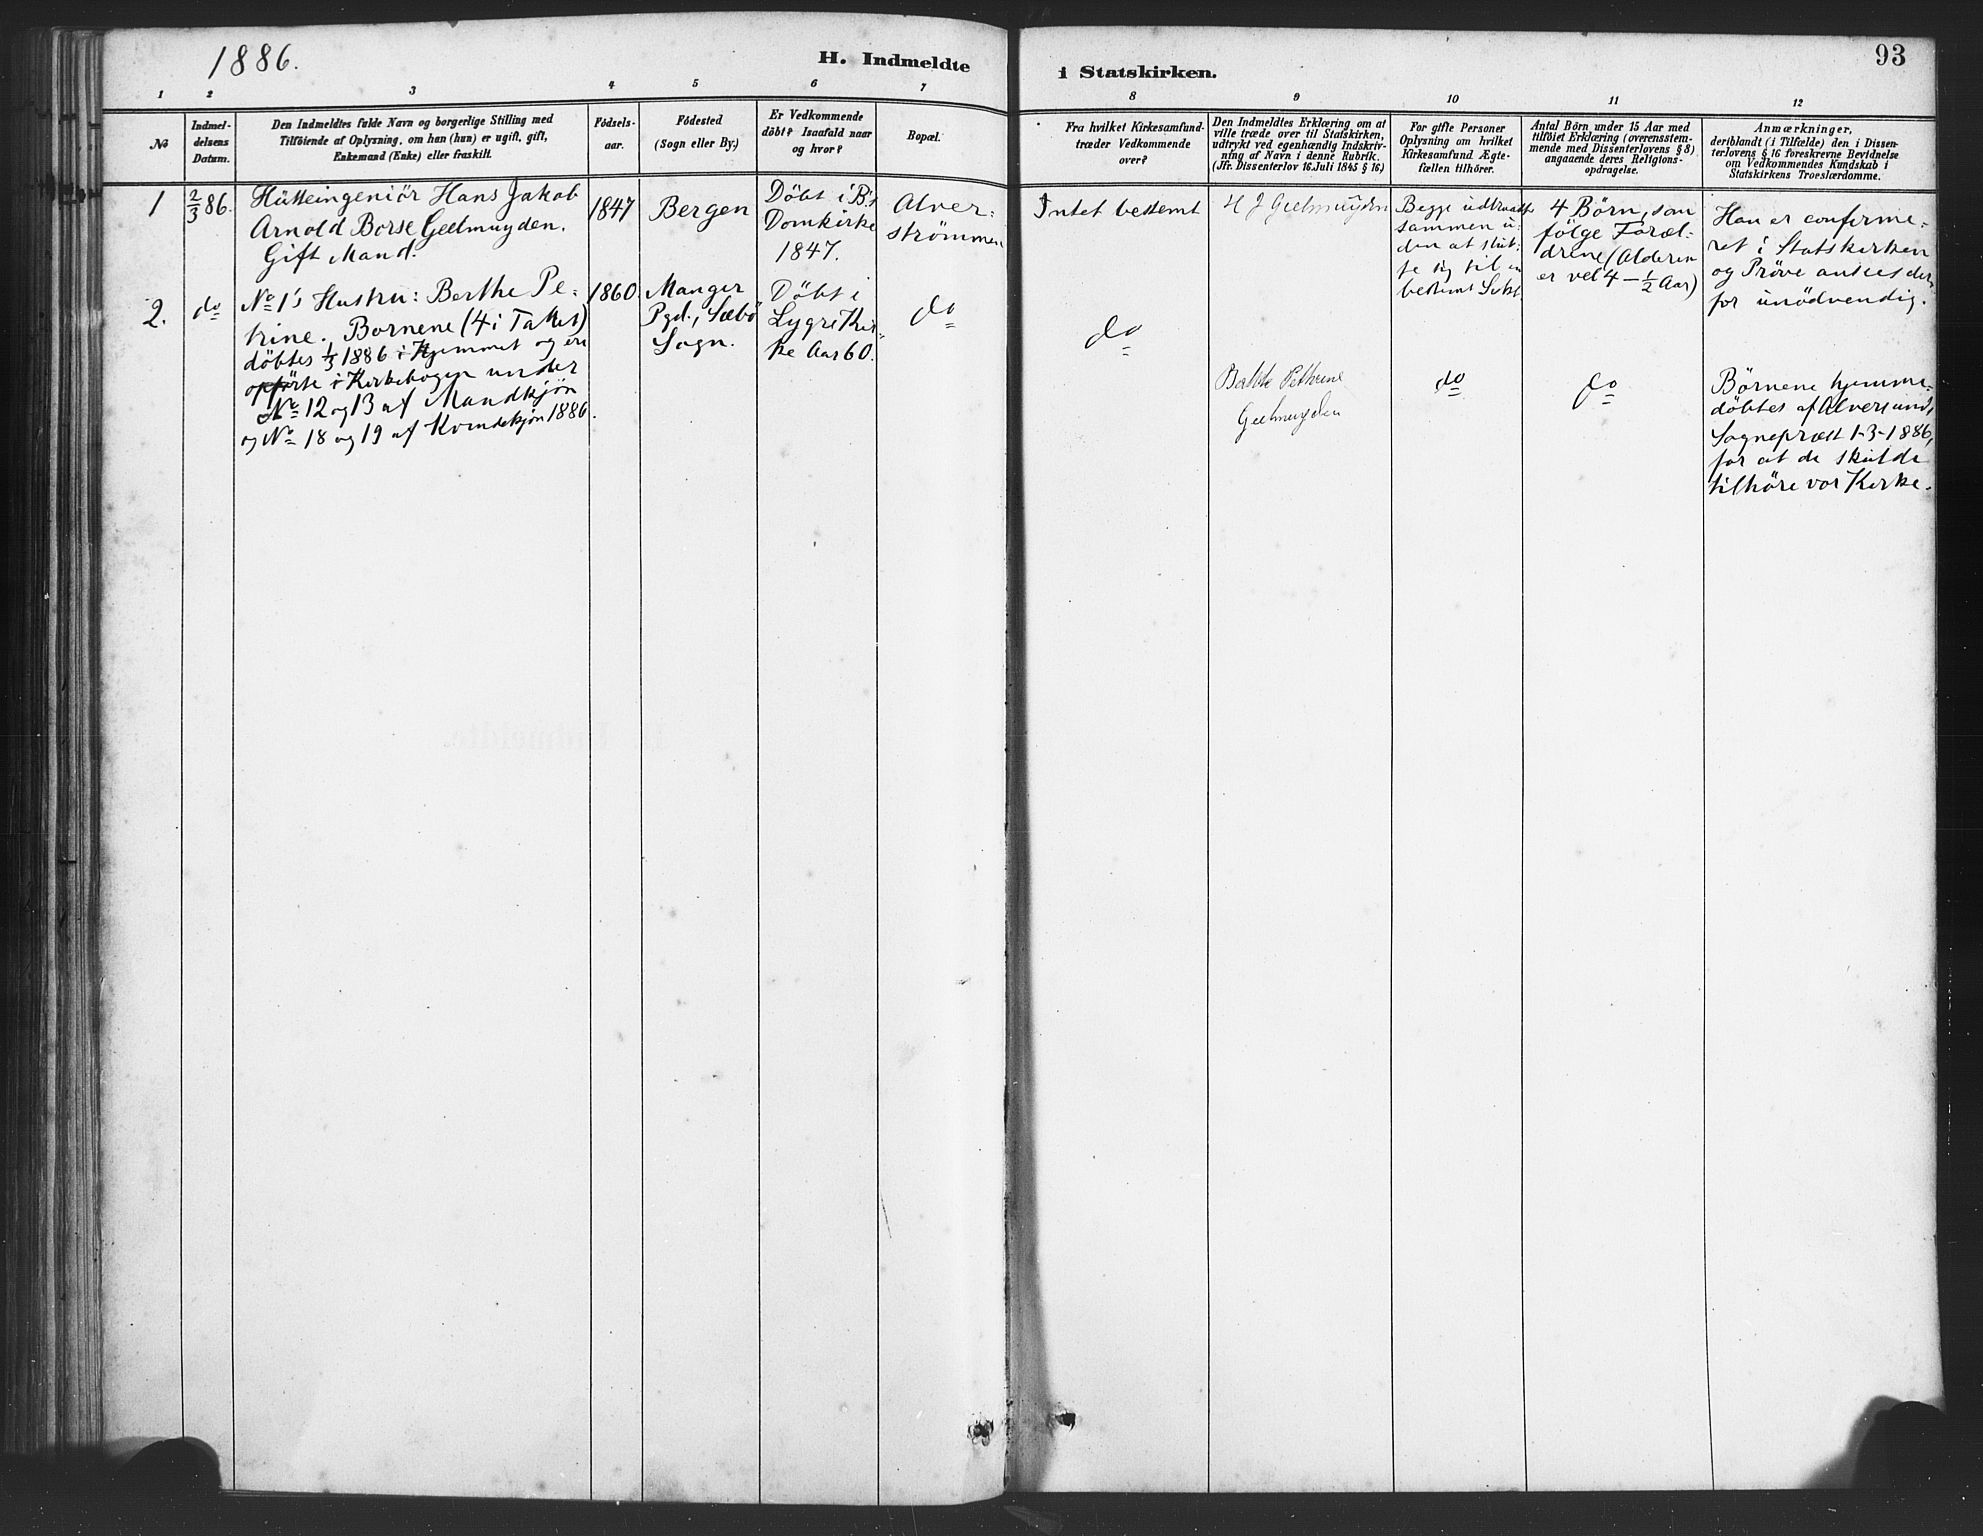 1886.
H. Indmeldte
i Statskirken.
93
1
2
3
4
5
6
7
8
9
10
11
12
No
Indmel-
delsens
Datum.
Den Indmeldtes fulde Navn og borgerlige Stilling med
Tilföiende af Oplysning, om han (hun) er ugift, gift,
Enkemand (Enke) eller fraskilt.
Födsels-
aar.
Födested
(Sogn eller By.)
Er Vedkommende
döbt? Isaafald naar
og hvor?
Bopæl.
Fra hvilket Kirkesamfund-
træder Vedkommende
over?
Den Indmeldtes Erklæring om at
ville træde over til Statskirken,
udtrykt ved egenhændig Indskriv-
ning af Navn i denne Rubrik.
(Jfr. Dissenterlov 16. Juli 1845 § 16.)
For gifte Personer
Oplysning om hvilket
Kirkesamfund Ægte-
fællen tilhörer.
Antal Börn under 15 Aar med
tilföiet Erklæring (overensstem-
mende med Dissenterlovens § 8)
angaaende deres Religions-
opdragelse.
Anmærkninger,
deriblandt (i Tilfælde) den i Dissen-
terlovens § 16 foreskrevne Bevidnelse
om Vedkommendes Kundskab i
Statskirkens Troeslærdomme.
1
2/3 86.
Hütteingeniör Hans Jakob
Arnold Borse Geelmuyden.
Gift Mand.
1847
Bergen
Döbt i B.s
Domkirke
1847.
Alver-
strömmen
Intet bestemt
H J Geelmuyden
Begge udtraadte
sammen u-
den at slut-
te sig til en
bestemt Sekt
4 Börn, som
fölge Foræl-
drene (Alderen
er vel 4 – 1/2 Aar)
Han er confirme-
ret i Statskirken
og Pröve ansees der-
for unödvendig.
2.
do
No 1's Hustru: Berthe Pe-
trine. Börnene (4 i Tallet)
döbtes 1/3 1886 i Hjemmet og ere
opförte i Kirkebogen under
No 12 og 13 af Mandkjön
og No 18 og 19 af Kvindekjön 1886.
1860
Manger
Pgd., Sæbö
Sogn.
Döbt i
Lygre Kir-
ke Aar 60.
do
do
Berthe Pethrine
Geelmuyden
do
do
Börnene hjemme-
döbtes af Alversunds
Sognepræst 1-3-1886,
for at de skulde
tilhöre vor Kirke.